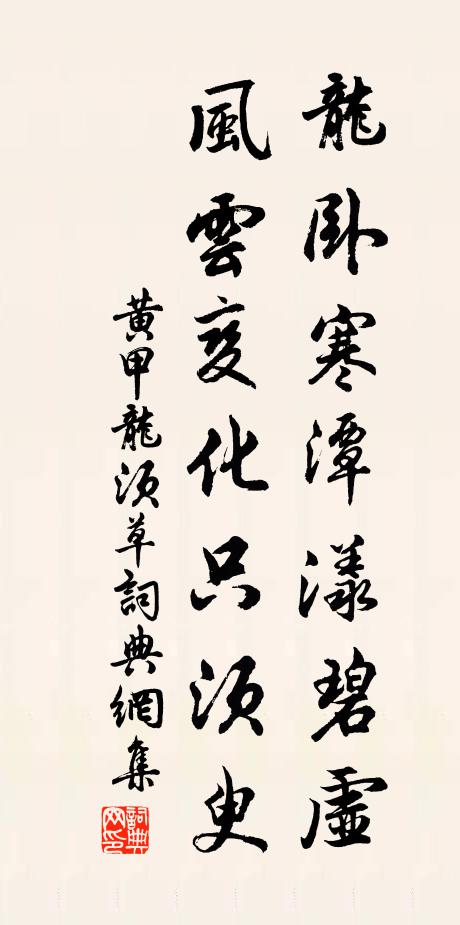 龍卧寒潭漾碧虛
風雲变化只须臾
黃甲龍须草詞典網集
詞典网印